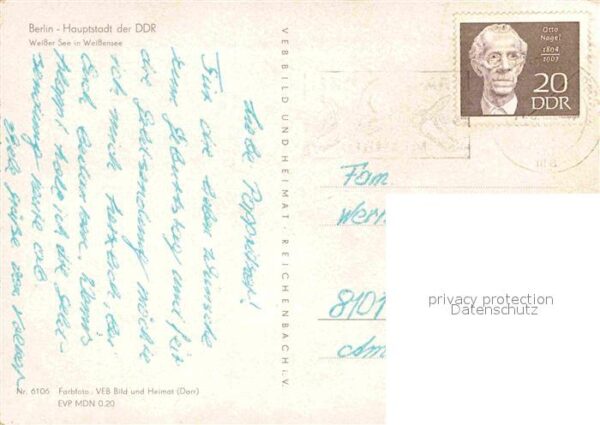 Berlin - Hauptstadt der DDR
Weißer See in Weißensee
VEB BILD UND HEIMAT · REICHENBACH i. V.
Otto
Nagel
1894
1967
20
DDR
Für die lieben Wünsche
zum Geburtstag und für
die Geldsendung möchte
ich mich herzlich, bei
Euch bedanken. Wenn's
klappt hole ich die
Fam.
8101
privacy protection
Datenschutz
Nr. 6106 Farbfoto: VEB Bild und Heimat (Darr)
EVP MDN 0.20